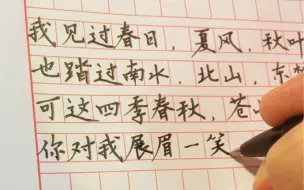 我见过春日,夏风,秋叶
也踏过南水.北山,东
可这四季春秋,苍
你对我展眉一笑